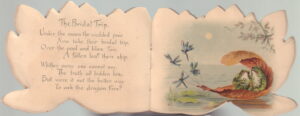 The Bridal Trip.
Under the moon the wedded pair
Now take their bridal trip,
Over the pond and lilies fair
A fallen leaf their ship.
Whither away one cannot say,
The truth all hidden lies,
But were it not the better way
To ask the dragon flies?